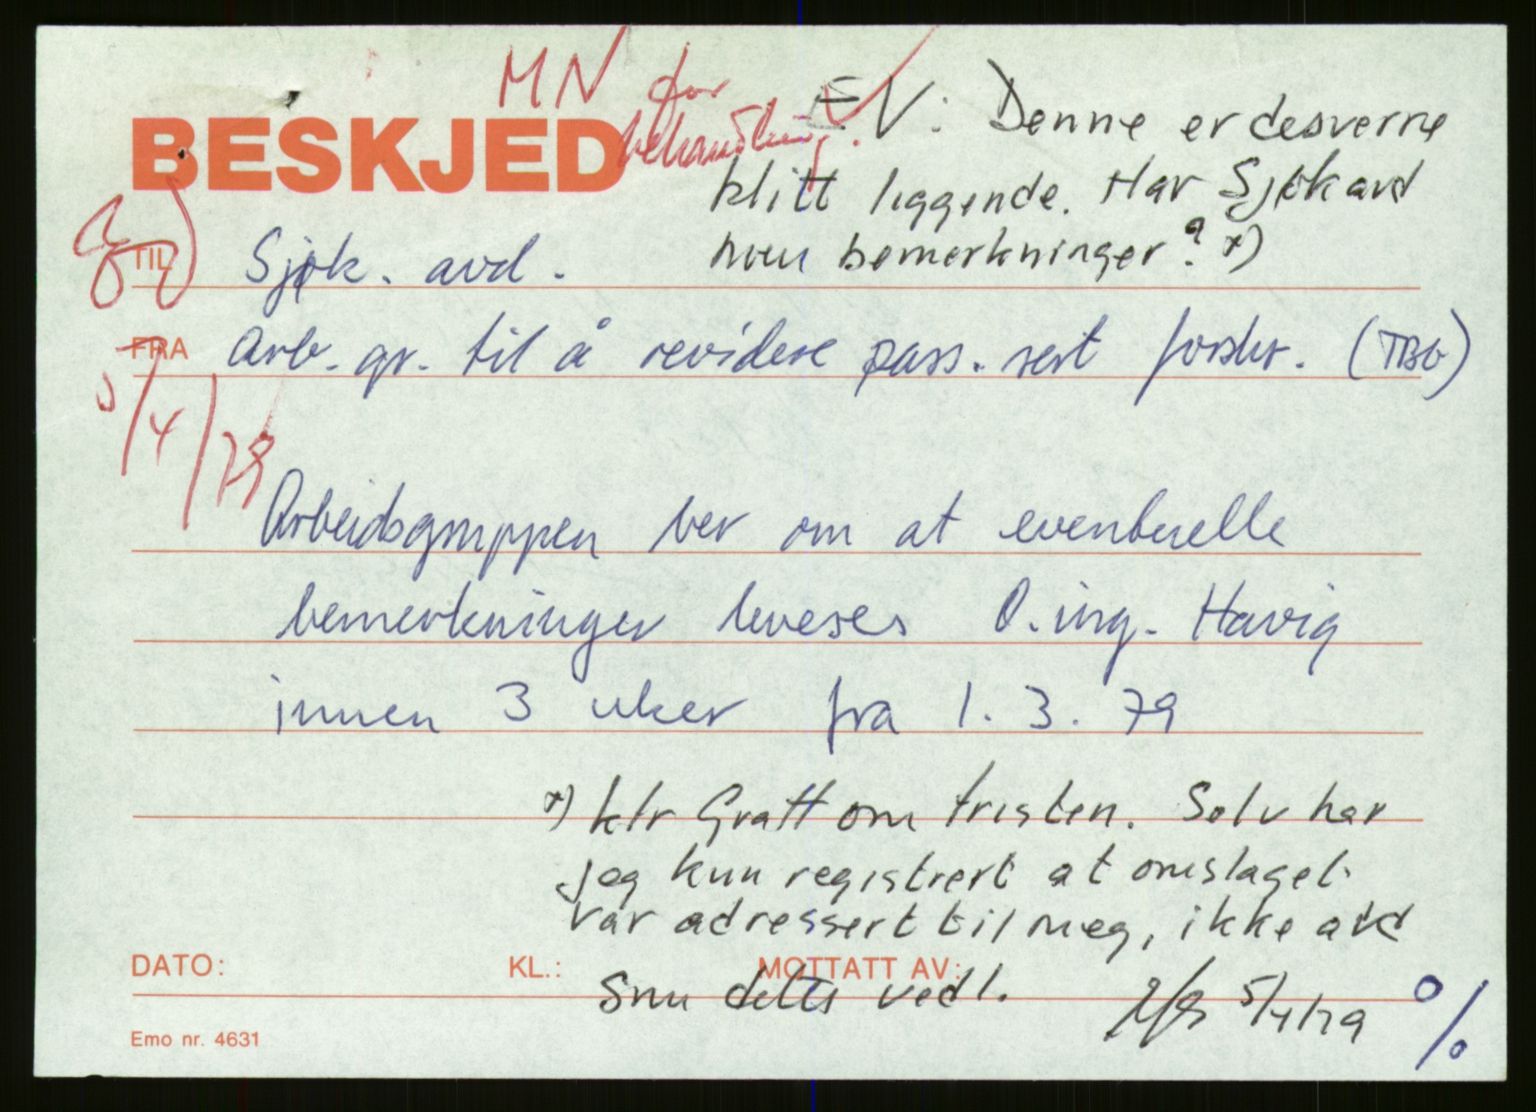 MN for
behandling.
EV: Denne er desverre
blitt liggende. Har Sjøkavd
noen bemerkninger? x)
BESKJED
TIL Sjøk. avd.
FRA Arb. gr. til å revidere pass. sert forskr. (TBG)
5/4/79
Arbeidsgruppen ber om at eventuelle
bemerkninger leveres O.ing. Havig
innen 3 uker fra 1.3.79
x) ktr Gratt om fristen. Selv har
jeg kun registrert at omslaget
var adressert til meg, ikke avd
som dette vedl.
5/4/79
DATO: KL.: MOTTATT AV:
Emo nr. 4631
%